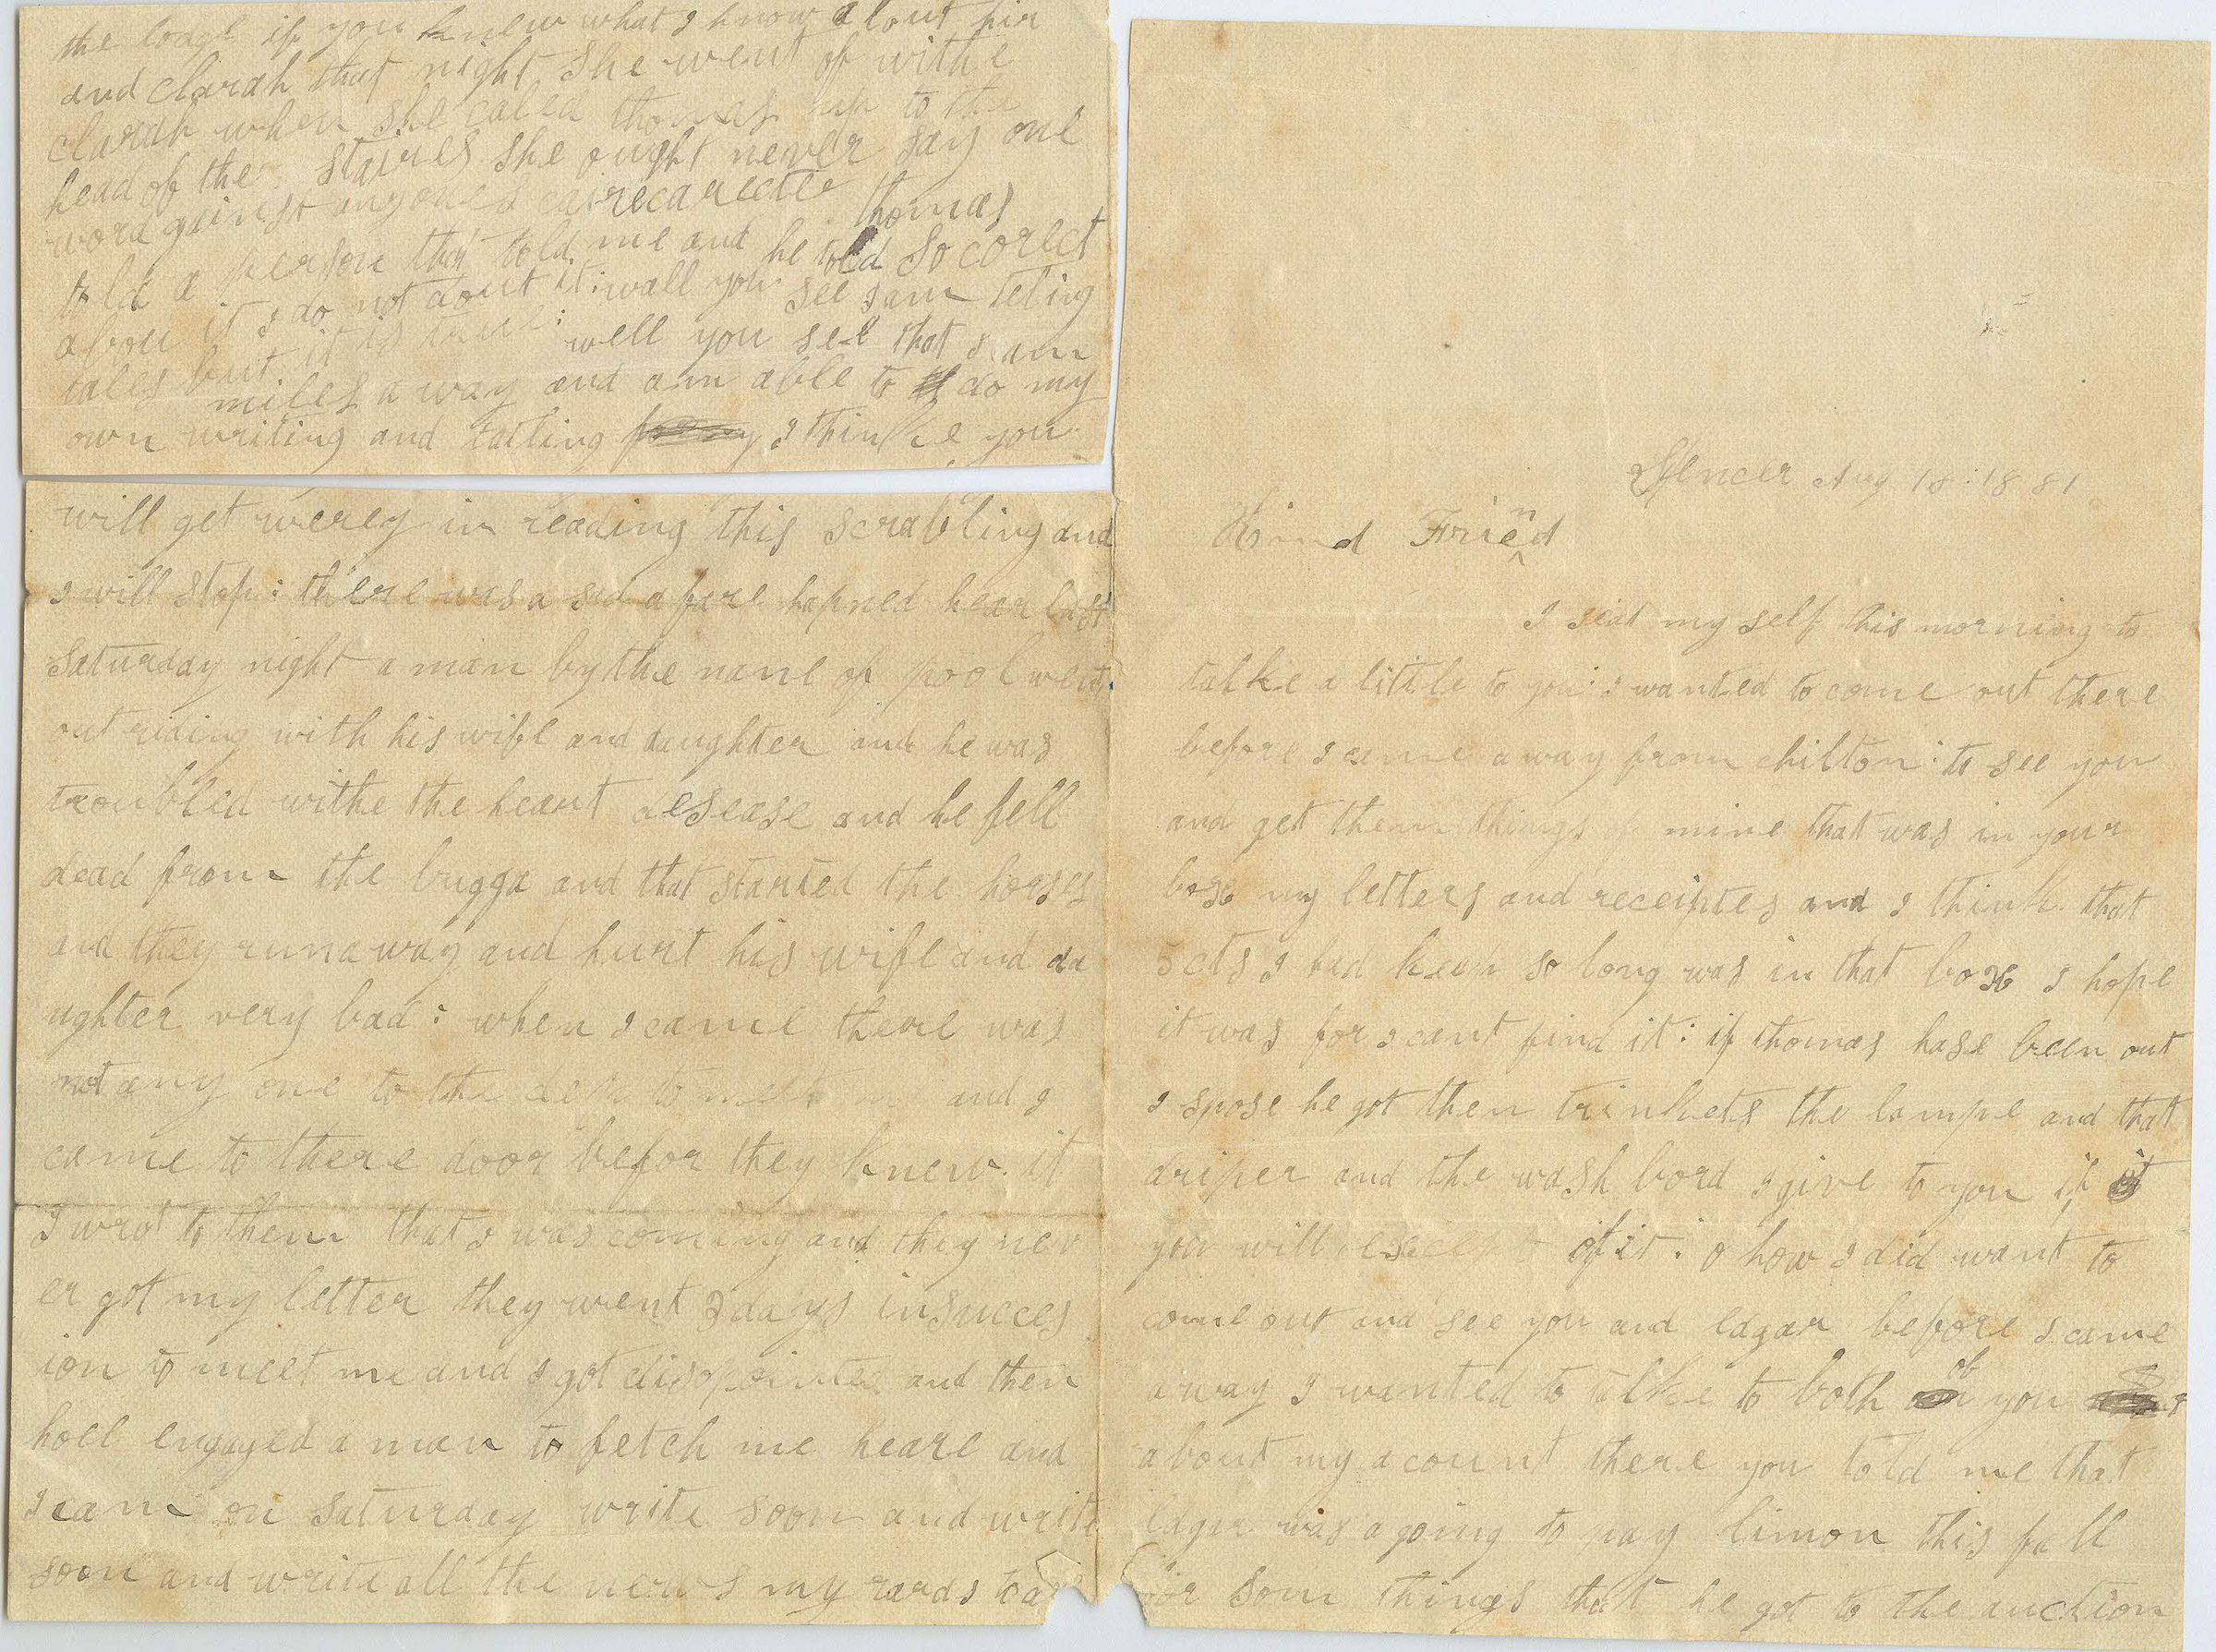 Spencer Aug 18: 18 81
Kind Friend
I seat my self this morning to
talke a little to you: I wanted to come out there
before I came a way from chilton: to see you
and get them things of mine that was in your
boxe my letters and receiptes and I think that
5 cts I had keep so long was in that boxe I hope
it was for I cant find it: if thomas hase been out
I spose he got then trinkets the lampe and that
driper and the wash bord I give to you if
you will of it: o how I did want to
come out and see you and edgar before I came
a way I wanted to talke to both of you
about my acount there you told me that
edgar was a going to pay limon this fall
for som things that he got to the auction
the if you knew what I know about hir
and clarah that night she went of withe
clarah when she caled thomas up to the
head of the staires she ought never say one
word gainst anyone thomas
told a person that told me and he told so corect
abou it I do not dout it: wall you see I am teling
tales but it is true: well you see that I am
miles a way and am able to do my
own writing and I thinke you
will get werey in reading this scrabling and
I will stop: there was a sad afare hapned hear last
saturday night a man by the name of pool went
out riding with his wife and daughter and he was
troubled withe the heart desease and he fell
dead from the bugga and that started the horses
and they runaway and hurt his wife and da
ughter very bad: when I came there was
not any one to the to meet me and I
came to there door befor they knew it
I wrot to them that I was coming and they nev
er got my letter they went 3 days in succes
ion to meet me and I got disopointed and then
hoel engaged a man to fetch me heare and
I cam on saturday write soon and write
soon and write all the news my rards to all